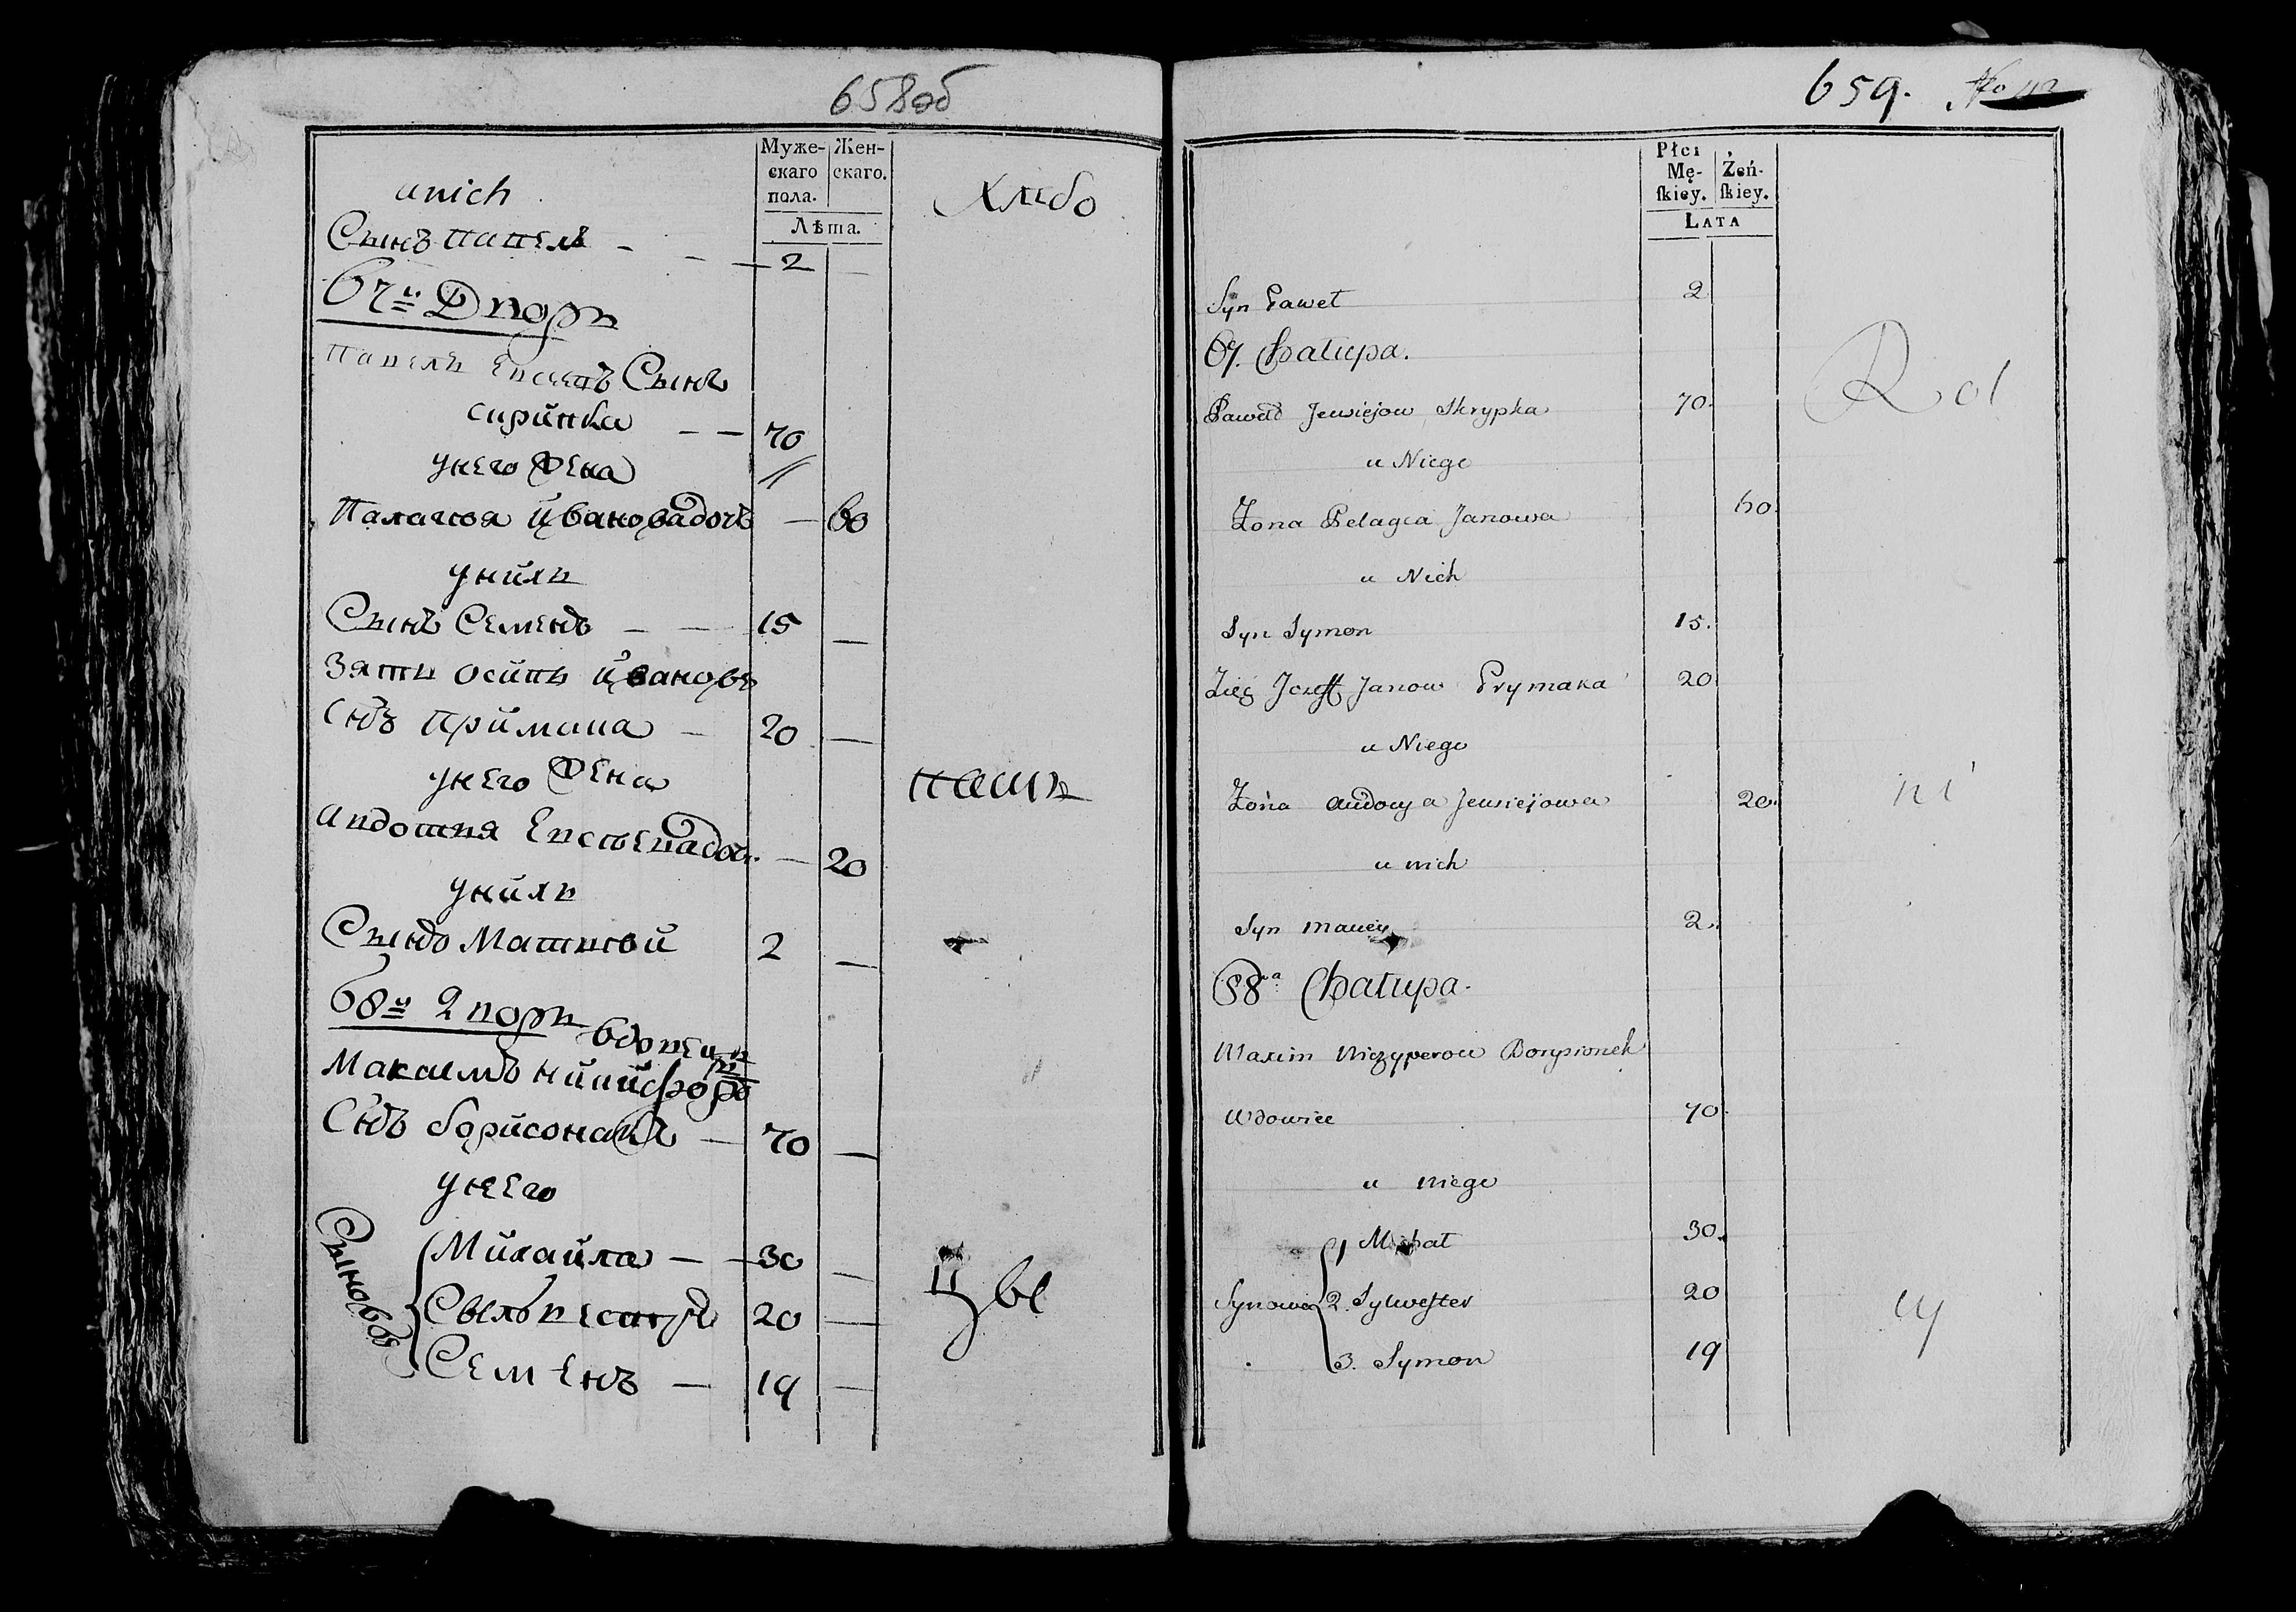 658об
Муже-
скаго
пола.
Жен-
скаго.
Лѣта.
unich
Хлибо
Сынъ павелъ — 2 —
67й Дворъ
павелъ Сынъ
скрипка — — 70
унего жена
Палагия Ивановадочъ — 60
унихъ
Сынъ Семенъ — — 15 —
Зять осипъ Ивановъ
Снъ примака — 20 —
унего жена
пашъ
Авдотия Евсѣевадоч. — 20
унихъ
Сынъ Матвѣй 2 —
68й Дворъ
вдовецъ
Максимъ никифоръ
Снъ борисонакъ — 70 —
унего
Сыновья
Михайла — — 30 —
Сылвестръ 20 —
цы
Семенъ — 19 —
659. No
Płci
Mę-
skiey.
Żeń-
skiey.
LATA
Syn Paweł 2
67. Chałupa.
Rol
Paweł Jewsiejow Skrypka 70.
u Niego
Żona Pelagia Janowa 60.
u Nich
Syn Symon 15.
Zięć Jozeff Janow Prymaka 20
u Niego
Żona Audocya Jewsiejowa 20.
ni
u nich
Syn Maciey 2.
68a Chałupa.
Maxim Niczyperow Borysionek
Wdowiec 70.
u niego
1 Michał 30.
Synowie 2. Sylwester 20
cy
3. Symon 19